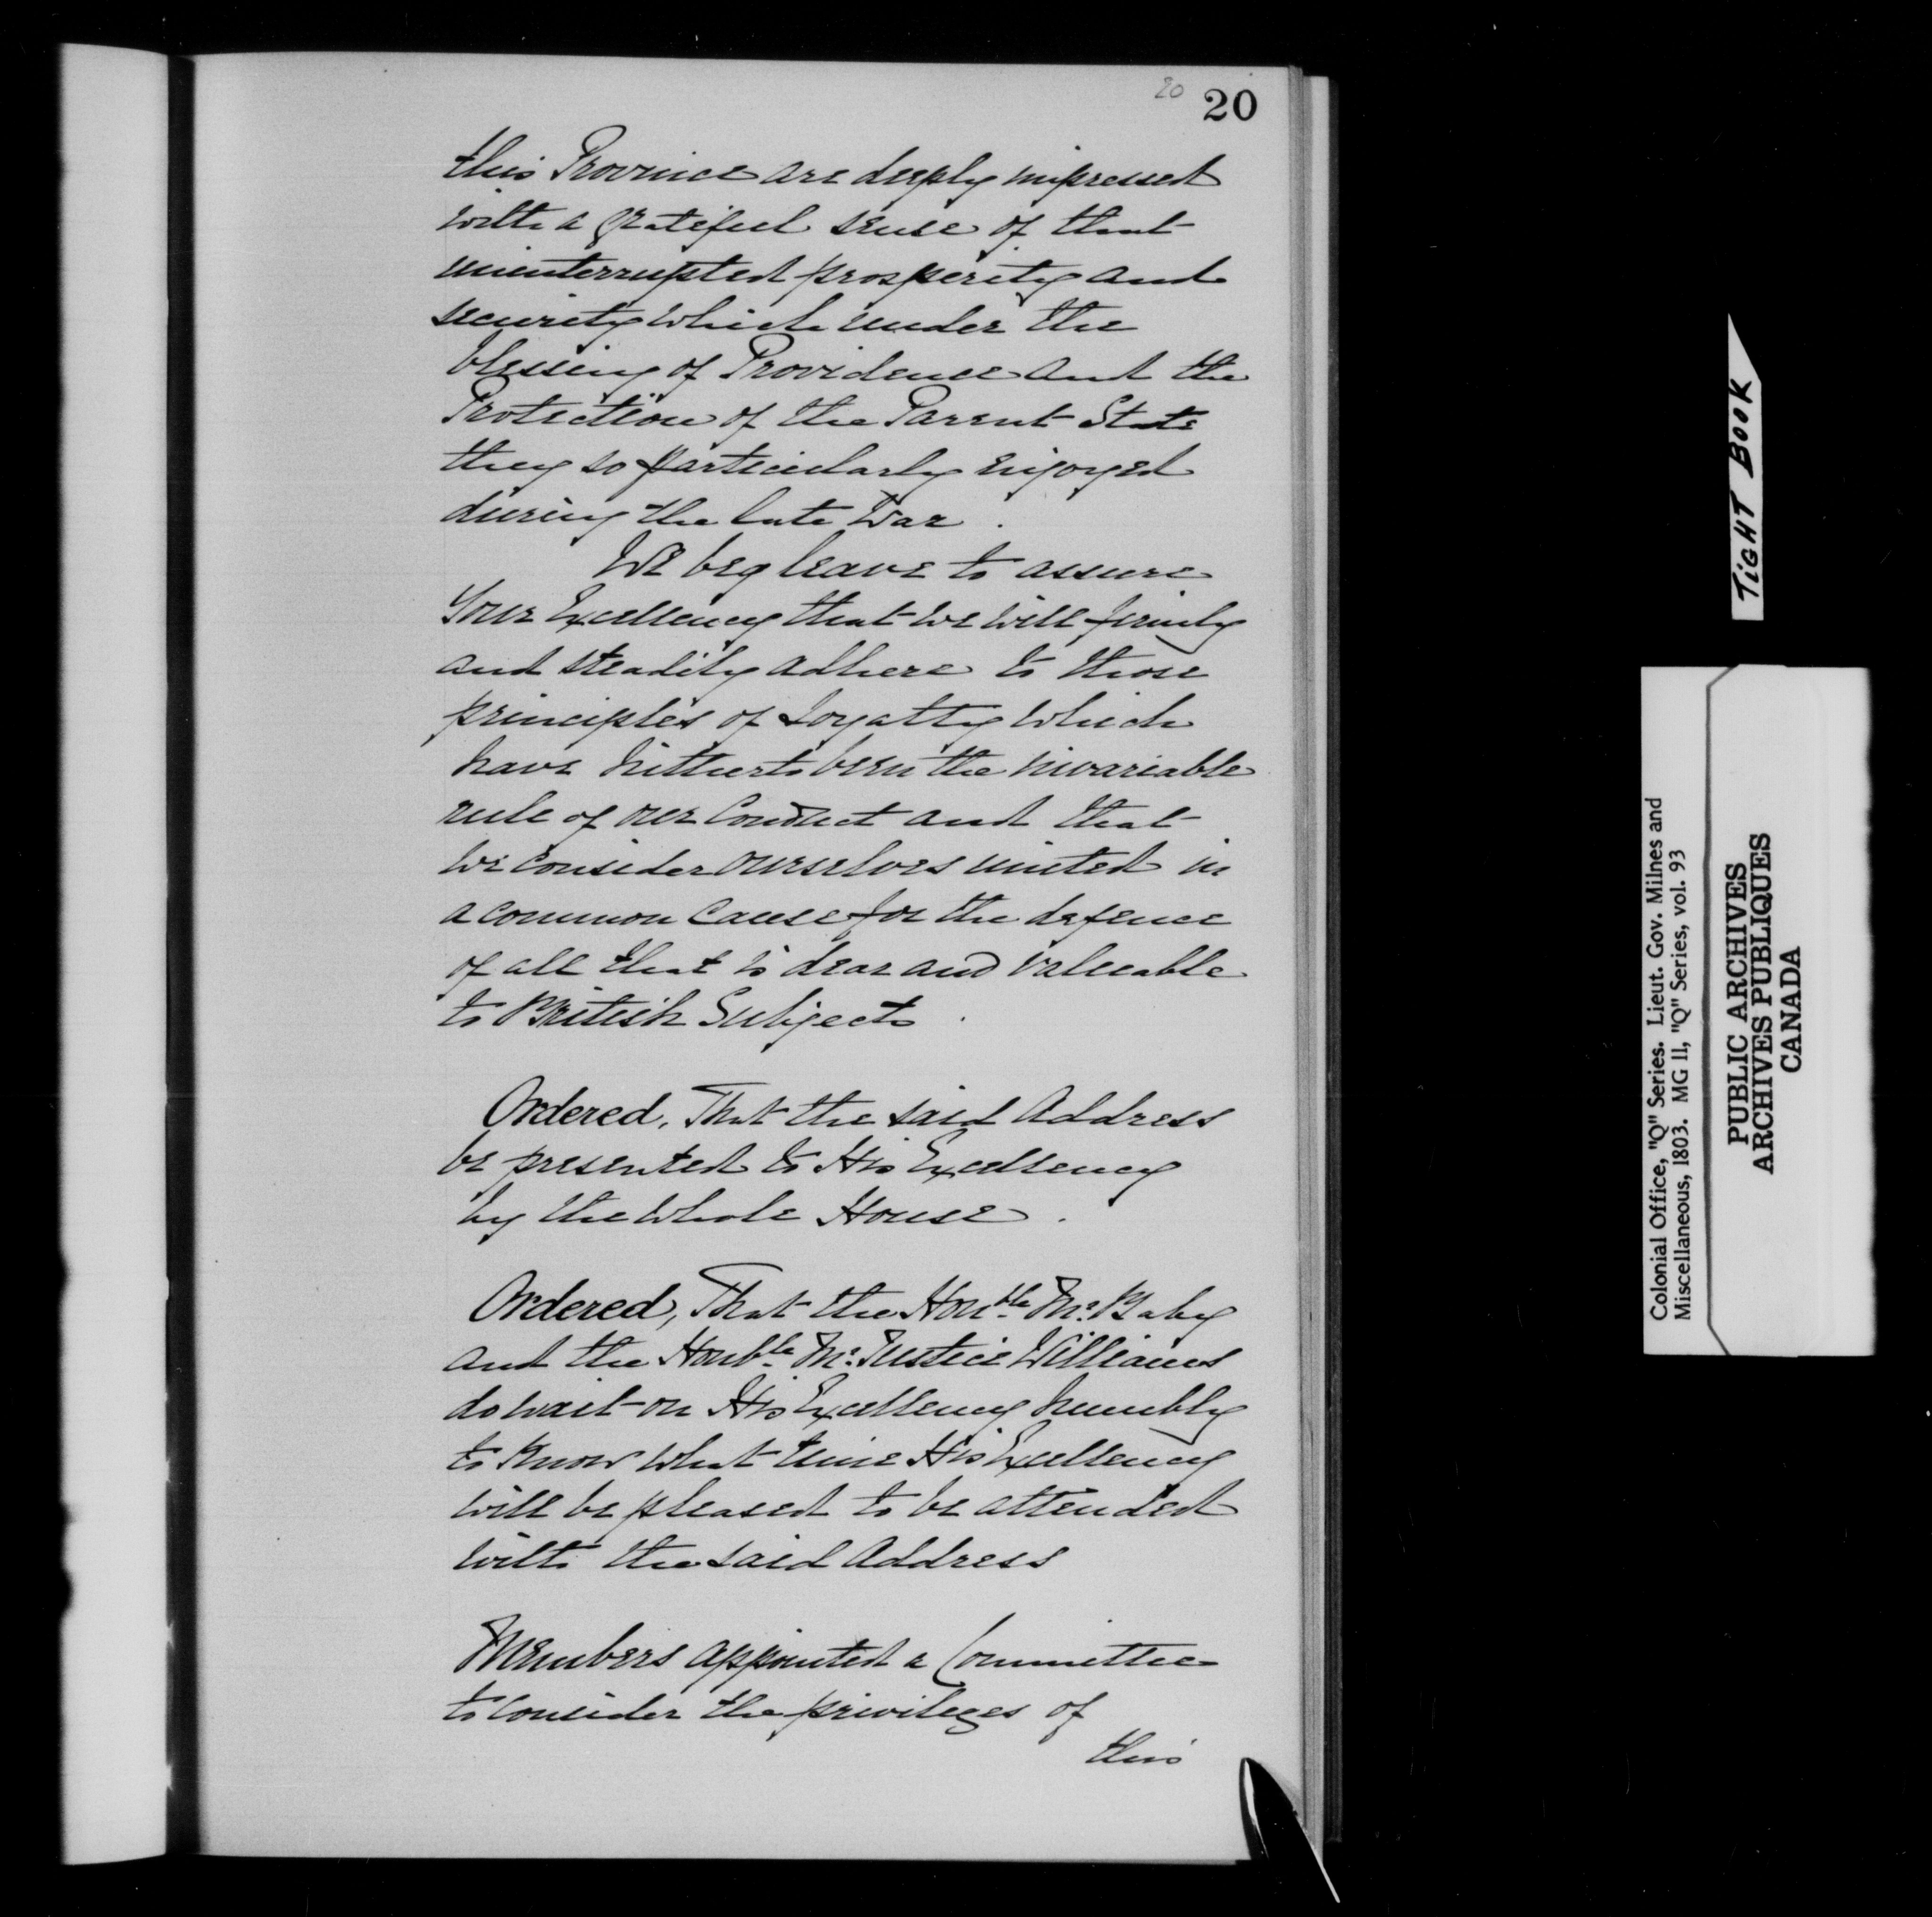 20 20
this Province are deeply impressed
with a grateful sense of that
uninterrupted prosperity and
security which under the
blessing of Providence and the
Protection of the Parent State
they so particularly enjoyed
during the late War.
We beg leave to assure
Your Excellency that we will firmly
and steadily adhere to those
principles of Loyalty which
have hitherto been the invariable
rule of our Conduct and that
we consider ourselves united in
a common cause for the defence
of all that is dear and valuable
to British Subjects.
Ordered, That the said Address
be presented to His Excellency
by the whole House.
Ordered, That the Honble Mr. Baby
and the Honble Mr. Justice Williams
do wait on His Excellency humbly
to know what time His Excellency
will be pleased to be attended
with the said Address
Members appointed a Committee
to consider the privileges of
this
TIGHT BOOK
Colonial Office, "Q" Series. Lieut. Gov. Milnes and
Miscellaneous, 1803. MG 11, "Q" Series, vol. 93
PUBLIC ARCHIVES
ARCHIVES PUBLIQUES
CANADA